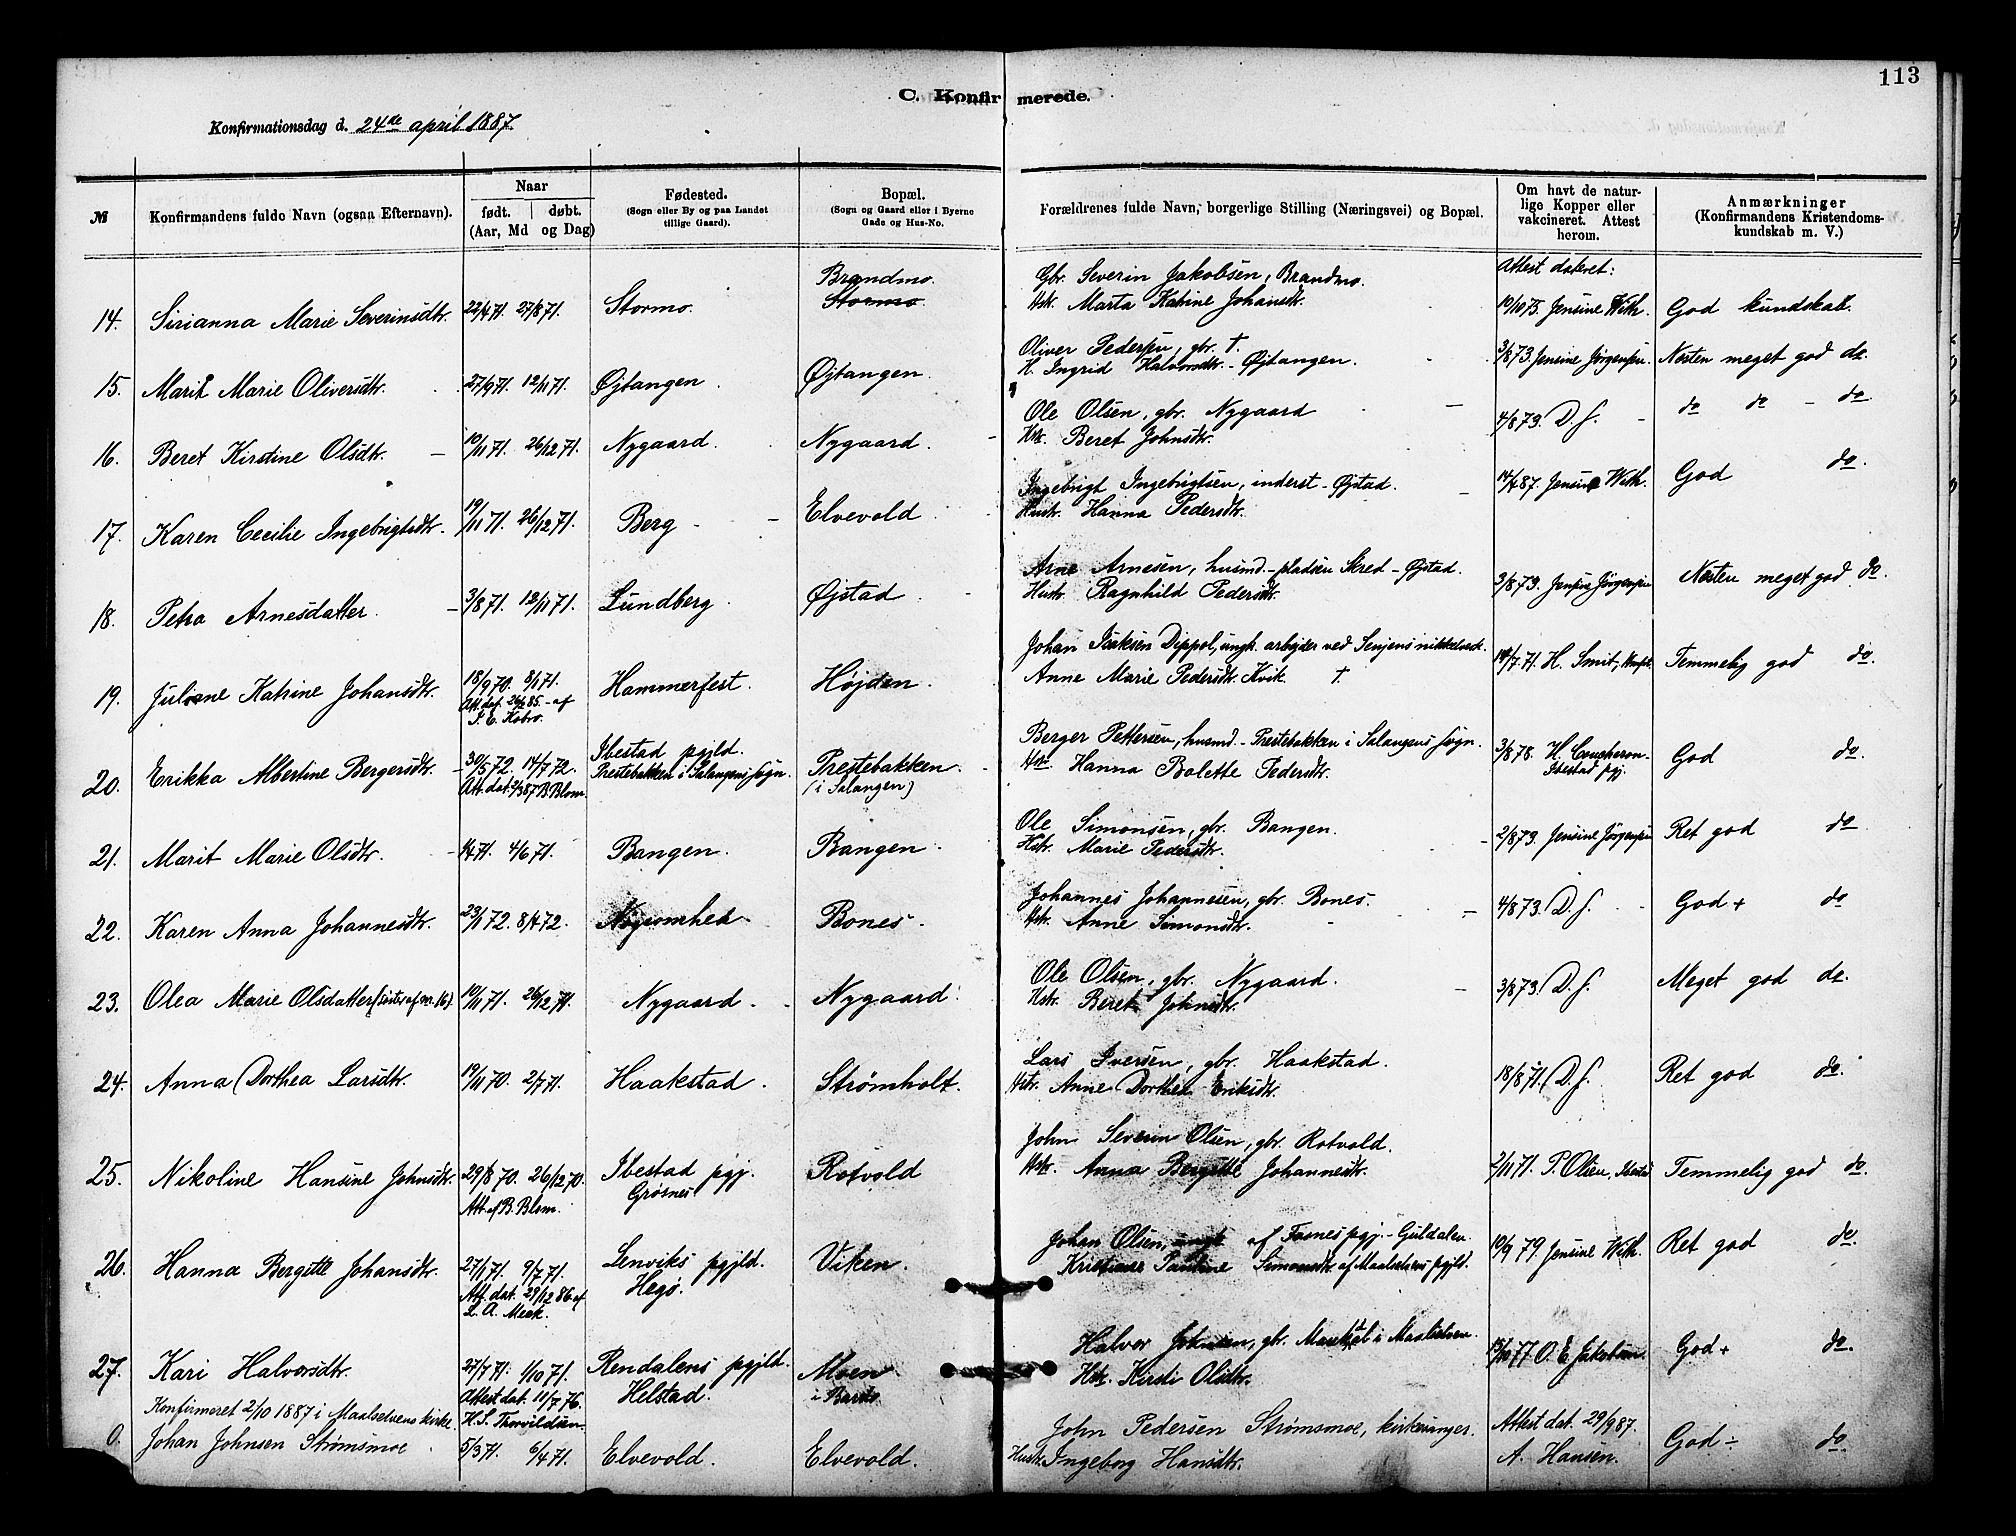 113
C. Konfirmerede.
Konfirmationsdag d. 24de april 1887.
№
Konfirmandens fulde Navn (ogsaa Efternavn).
Naar
født. døbt.
(Aar, Md og Dag)
Fødested.
(Sogn eller By og paa Landet
tillige Gaard).
Bopæl.
(Sogn og Gaard eller i Byerne
Gade og Hus-No.
Forældrenes fulde Navn, borgerlige Stilling (Næringsvei) og Bopæl.
Om havt de natur-
lige Kopper eller
vakcineret. Attest
herom.
Anmærkninger
(Konfirmandens Kristendoms-
kundskab m. V.)
Attest dateret:
14. Sirianna Marie Severinsdtr. 22/4 71. 27/8 71. Stormo. Brandmo.
Stormo
Gbr. Severin Jakobsen, Brandmo.
Hst. Marta Katrine Johansdtr. 19/10 75. Jensine With. God kundskab.
15. Marit Marie Oliversdtr. 27/9 71. 12/11 71. Øjtangen. Øjtangen.
Oliver Pedersen, gbr. †.
H. Ingrid Halvorsdtr. - Øjtangen. 3/8 73. Jensine Jørgensen. Næsten meget god do.
16. Beret Kirstine Olsdtr. 10/11 71. 26/12 71. Nygaard. Nygaard.
Ole Olsen, gbr. Nygaard
Hst. Beret Johnsdtr. 4/8 73. D. s. do do - do
17. Karen Cecilie Ingebrigtsdtr. 19/11 71. 26/12 71. Berg Elvevold
Ingebrigt Ingebrigtsen, inderst - Øjstad.
Hustr. Hanna Pedersdtr. 14/4 87. Jensine With. God do.
18. Petra Arnesdatter. 3/8 71. 12/11 71. Lundberg. Øjstad.
Arne Arnesen, husmd. - pladsen Skred - Øjstad.
Hustr. Ragnhild Pedersdtr. 3/8 73. Jensine Jørgensen Næsten meget god do.
19. Juliane Katrine Johansdtr. 18/9 70. 8/1 71. Hammerfest. Højden.
Att. dat. 26/2 85. - af
Johan Isaksen Dippol, ungk. arbejder ved Senjens nikkelverk.
Anne Marie Pedersdtr. Kvik. † 14/7 71. H. Smit, Temmelig god do.
20. Erikka Albertine Bergersdtr. 30/5 72. 14/7 72. Ibestad pgjld.
Prestebakken i Salangens sogn. Prestebakken
(i Salangen)
Att. dat. 9/3 87 B. Blom.
Berger Pettersen, husmd. - Prestebakken i Salangens sogn.
Hst. Hanna Bolette Pedersdtr. 3/8 78. H. Coucheron
Ibestad pgj. God do.
21. Marit Marie Olsdtr. 4/6 71. Bangen. Bangen.
Ole Simonsen, gbr. Bangen.
Hst. Marie Pedersdtr. 2/8 73. Jensine Jørgensen Ret god do
22. Karen Anna Johannesdtr. 23/1 72. 8/4 72. Nysomhed Bones.
Johannes Johannesen, gbr. Bones.
Hst. Anne Simonsdtr. 4/8 73. D. s. God + do
23. Olea Marie Olsdatter (søster af no. 16). 10/11 71. 26/12 71. Nygaard. Nygaard.
Ole Olsen, gbr. Nygaard.
Hst. Beret Johnsdtr. 3/8 73. D. s. Meget god do.
24. Anna Dorthea Larsdtr. 19/11 70. 2/7 71. Haakstad. Strømholt.
Lars Iversen, gbr. Haakstad.
Hst. Anne Dorthea Eriksdtr. 18/8 71. D. s. Ret god do.
25. Nikoline Hansine Johnsdtr. 29/8 70. 26/12 70. Ibestad pgj.
Grøsnes Rotvold
Att. af B. Blom.
John Severin Olsen, gbr. Rotvold.
Hst. Anna Bergitte Johannesdtr. 2/11 71. P. Olsen, Ibestad Temmelig god do.
26. Hanna Bergitte Johansdtr. 27/1 71. 9/7 71. Lenviks pgjld.
Hegø. Viken.
Att. dat. 29/12 86 af
L. A. Meek.
Johan Olsen, ungk. af Fosnes pgj. - Guldalen.
Kristianse Pauline Simonsdtr. af Maalselvens pgjld. 19/9 79. Jensine With. Ret god do.
27. Kari Halvorsdtr. 27/7 71. 1/10 71. Rendalens pgjld.
Helstad. Moen
i Bardo
Attest dat. 11/7 76.
H. S. Thorvildsen
Halvor Johnsen, gbr. i Maalselven.
Hst. Kirsti Olsdtr. 15/10 77 O. E. Jakobsen. God + do.
Konfirmeret 2/10 1887 i Maalselvens kirke.
0. Johan Johnsen Strømsmoe 5/3 71. 6/4 71. Elvevold Elvevold.
John Pedersen Strømsmoe, kirkesanger.
Hustr. Ingeborg Hansdtr. Attest dat. 29/9 87.
A. Hansen. God ÷ do